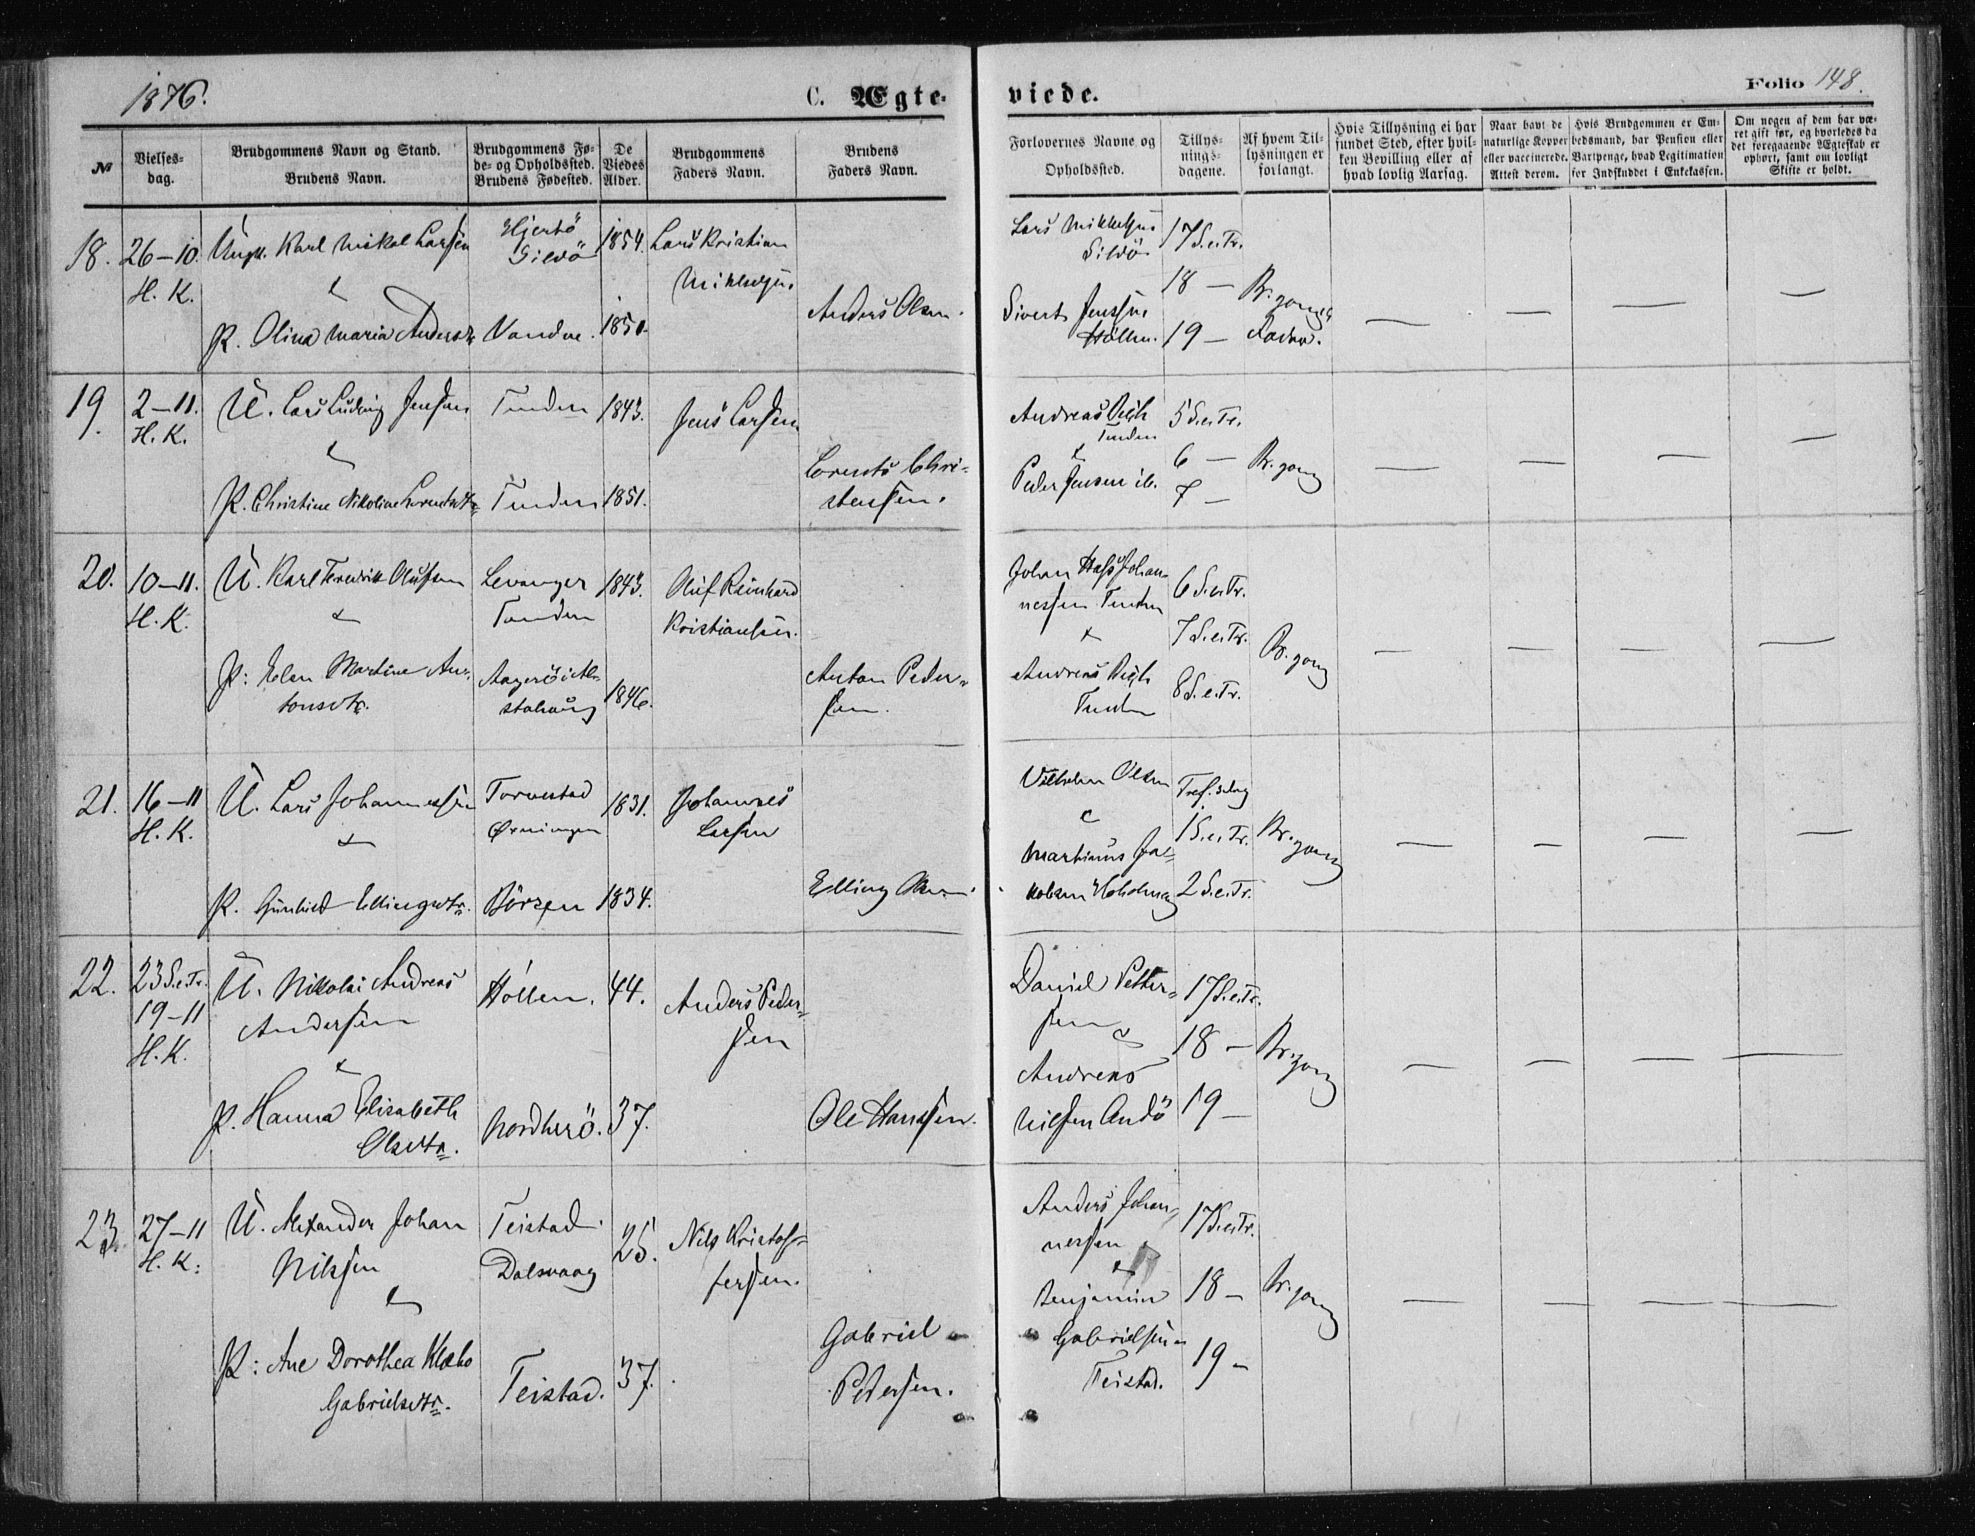 1876.
C. Ægte-
viede.
Folio 148.
№
Vielses-
dag.
Brudgommens Navn og Stand.
Brudens Navn.
Brudgommens Fø-
de- og Opholdssted.
Brudens Fødested.
De
Viedes
Alder.
Brudgommens
Faders Navn.
Brudens
Faders Navn.
Forlovernes Navne og
Opholdssted.
Tillys-
nings-
dagene.
Af hvem Til-
lysningen er
forlangt.
Hvis Tillysning ei har
fundet Sted, efter hvil-
ken Bevilling eller af
hvad lovlig Aarsag.
Naar havt de
naturlige Kopper
eller vaccinerede.
Attest derom.
Hvis Brudgommen er Em-
bedsmand, har Pension eller
Vartpenge, hvad Legitimation
for Indskuddet i Enkekassen.
Om nogen af dem har væ-
ret gift før, og hvorledes da
det foregaaende Ægteskab er
ophørt, samt om lovligt
Skifte er holdt.
18.
26-10.
H. K.
Ungk. Karl Mikal Larsen
&
P. Olina Maria Andersdtr
Hjertö
Sildö
Vandve.
1854.
1850.
Lars Kristian
Mikkelsen.
Anders Olsen.
Lars Mikkelsen
Sildö
Sivert Jenssen
Höllen.
17 S.e.Tr.
18 —
19 —
Br.gom
— — — —
19.
2-11.
H. K.
U. Lars Ludvig Jensen
&
P. Christine Nikoline Lorentsdtr
Tenden
Tenden
1843.
1851.
Jens Larsen
Lorents Chri-
stensen.
Andreas
Tenden
&
Peder Jensen ib.
5 S.e.Tr.
6 —
7 —
Br.gom
— — — —
20.
10-11.
H. K.
U. Karl Fredrik Olufsen
&
P: Elen Martine An-
tonsdtr.
Levanger
Tenden
Aagerö i Al-
stahaug
1843.
1846.
Oluf Reinhard
Kristiansen.
Anton Peder-
sen.
Johan Johan-
nessen Tenden
&
Andreas
Tenden
6 S.e.Tr.
7 S.e.Tr.
8 S.e.Tr.
Br.gom
— — — —
21.
16-11
H. K.
U. Lars Johannessen
&
P. Gunhild Ellingsdtr.
Torvestad
Börsen
1831.
1834.
Johannes
Larsen
Elling
Vilhelm Olsen
&
Martinus Ja-
kobsen Hoholmen
Tref. sdag
1 S.e.Tr.
2 S.e.Tr.
Br.gom
— — — —
22.
23 S.e.Tr.
19-11
H. K.
U. Nikolai Andreas
Andersen
&
P. Hanna Elisabeth
Olsdtr.
Höllen.
Nordherö.
44.
37.
Anders Peder-
sen
Ole Hanssen.
Daniel Petter-
sen &
Andreas
Nilsen Andö
17 S.e.Tr.
18 —
19 —
Br.gom
— — — —
23.
27-11
H. K.
U. Alexander Johan
Nilssen
&
P: Ane Dorothea Klæbo
Gabrielsdtr.
Teistad
Dalsvaag
Teistad.
25.
37.
Nils Kristof-
fersen.
Gabriel
Pedersen.
Anders Johan-
nessen
&
Benjamin
Gabrielsen
Teistad.
17 S.e.Tr.
18 —
19 —
Br.gom
— — — —